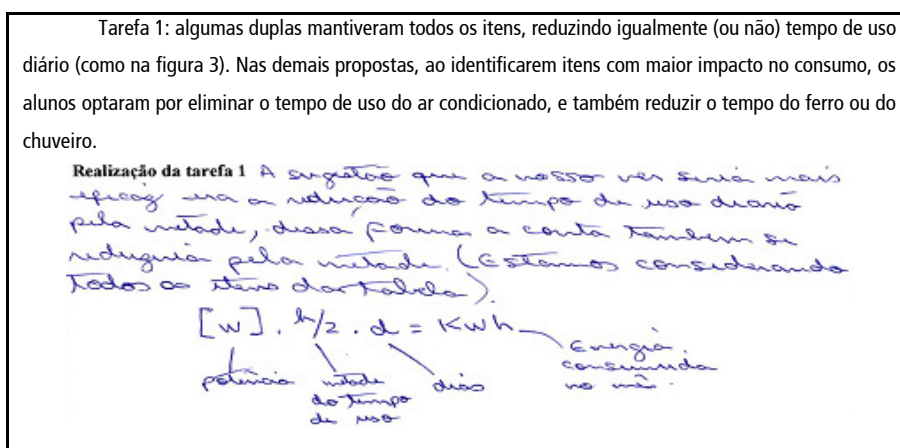 Tarefa 1: algumas duplas mantiveram todos os itens, reduzindo igualmente (ou não) tempo de uso
diário (como na figura 3). Nas demais propostas, ao identificarem itens com maior impacto no consumo, os
alunos optaram por eliminar o tempo de uso do ar condicionado, e também reduzir o tempo do ferro ou do
chuveiro.
Realização da tarefa 1 A sugestão que a nosso ver seria mais
eficaz era a redução do tempo de uso diario
pela metade, dessa forma a conta tambem se
reduziria pela metade. (Estamos considerando
todos os itens da tabela).
[W] . h/2 . d = KWh
potência metade do tempo de uso dias Energia consumida no mês.